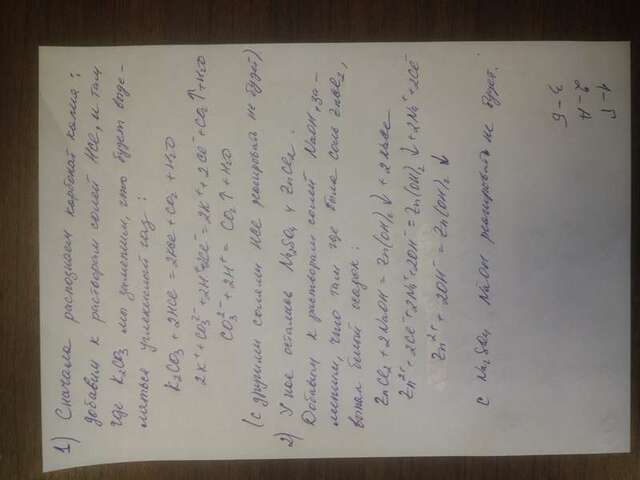 1) Сначала распознаем карбонат калия:
добавим к растворам солей HCl, и там
где K2CO3 мы заметим, что будет выде-
ляться углекислый газ:
K2CO3 + 2HCl = 2KCl + CO2 + H2O
2K⁺ + CO3²⁻ + 2H⁺ + 2Cl⁻ = 2K⁺ + 2Cl⁻ + CO2↑ + H2O
CO3²⁻ + 2H⁺ = CO2↑ + H2O
(с другими солями HCl реагировать не будет)
2) У нас остались Na2SO4 и ZnCl2.
Добавим к растворам солей NaOH и за-
метим, что там где была соль ZnCl2,
выпал белый осадок:
ZnCl2 + 2NaOH = Zn(OH)2↓ + 2NaCl
Zn²⁺ + 2Cl⁻ + 2Na⁺ + 2OH⁻ = Zn(OH)2↓ + 2Na⁺ + 2Cl⁻
Zn²⁺ + 2OH⁻ = Zn(OH)2↓
С Na2SO4 NaOH реагировать не будет.
1-5
2-4
3-6